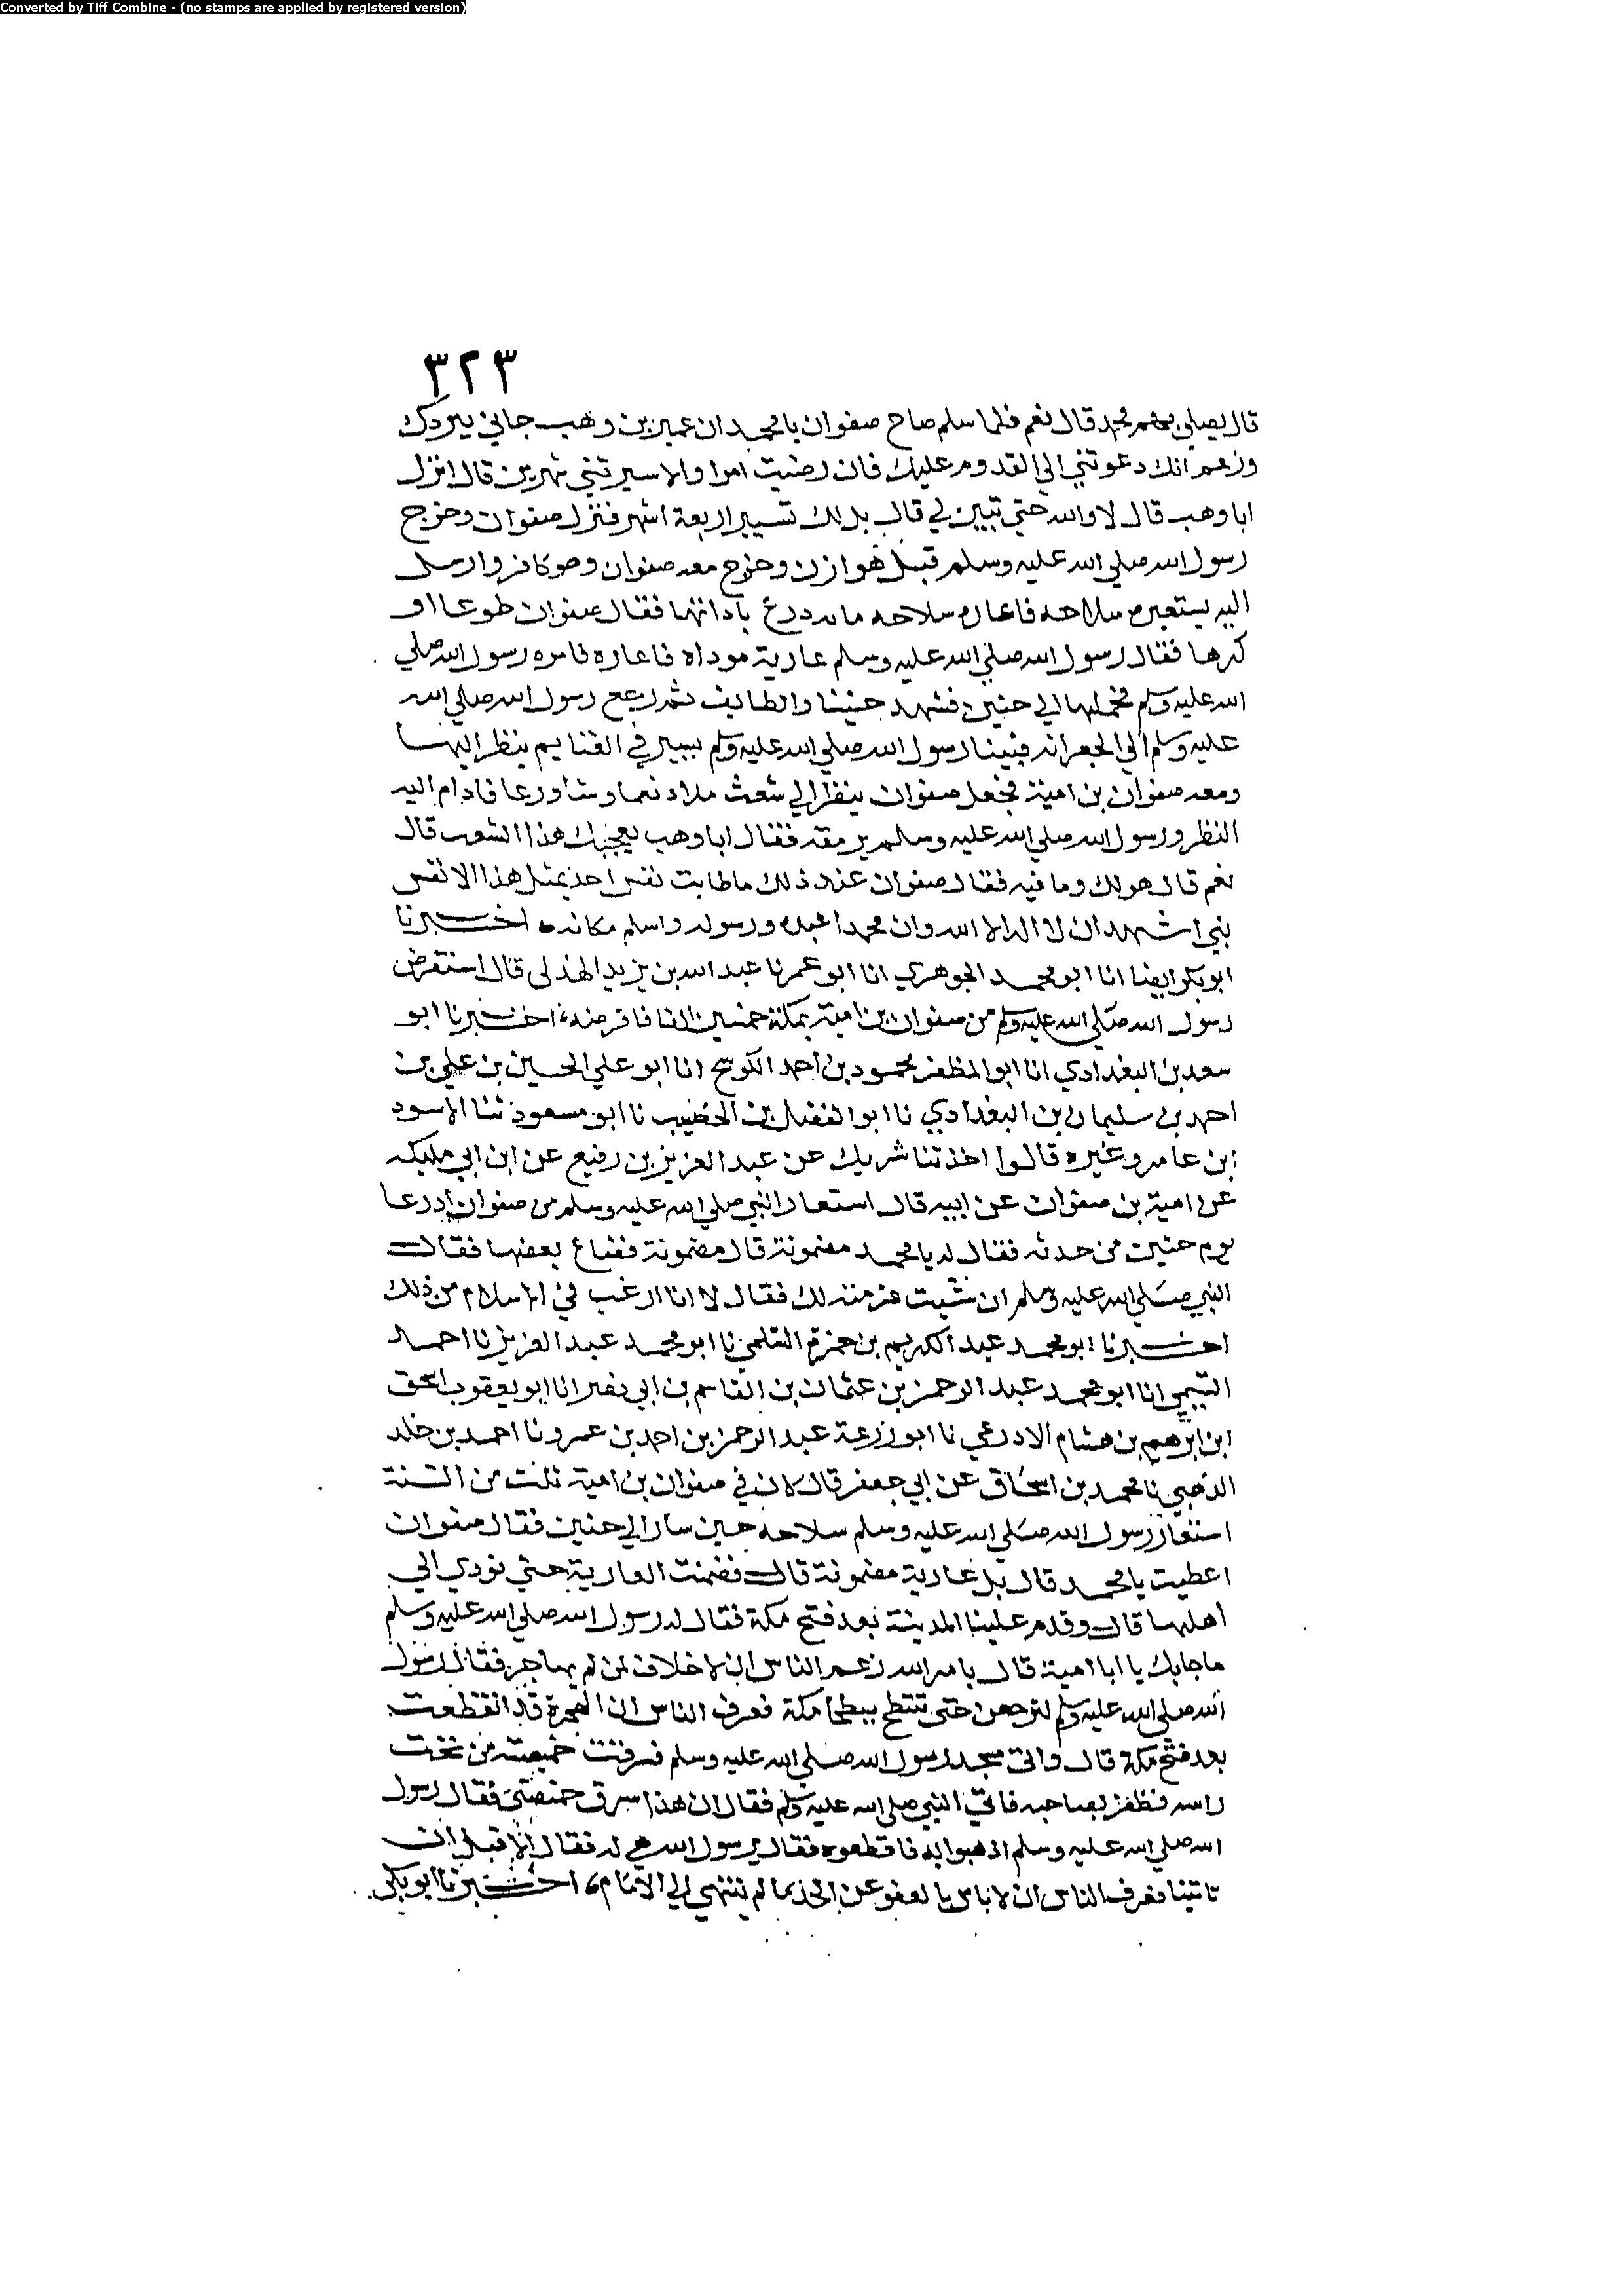 Converted by Tiff Combine - (no stamps are applied by registered version)
٣٢٣
قال يصلي بهم محمد قال نعم فلما سلم صاح صفوان يا محمد ان عمير بن وهب جاني ببردك
وزعم انك دعوتني الي القدوم عليك فان رضيت امرا والا سيرتني شهرين قال انزل
ابا وهب قال لا والله حتي تبين لي قال بل لك تسيير اربعة اشهر فنزل صفوان وخرج
رسول الله صلي الله عليه وسلم قبل هوازن وخرج معه صفوان وهو كافر وارسل
اليه يستعيره سلاحه فاعاره سلاحه مايه درع باداتها فقال صفوان طوعا او
كرها فقال رسول الله صلي الله عليه وسلم عارية موداه فاعاره فامره رسول الله صلي
الله عليه وسلم فحملها الي حنين فشهد حنينا والطايف ثم رجع رسول الله صلي الله
عليه وسلم الي الجعرانه فبينا رسول الله صلي الله عليه وسلم يسير في الغنايم ينظر اليها
ومعه صفوان بن امية فجعل صفوان ينظر الي شعث ملاء نعما وشاء ورعا فادام اليه
النظر ورسول الله صلي الله عليه وسلم يرمقه فقال ابا وهب يعجبك هذا الشعب قال
نعم قال هو لك وما فيه فقال صفوان عند ذلك ما طابت نفس احد بمثل هذا الا نفس
نبي اشهد ان لا اله الا الله وان محمدا عبده ورسوله واسلم مكانه اخبرنا
ابو بكر ايضا انا ابو محمد الجوهري انا ابو عمر نا عبد الله بن يزيد الهذلى قال استقرض
رسول الله صلي الله عليه وسلم من صفوان بن امية بمكة خمسين الفا فاقرضه اخبرنا ابو
سعد بن البغدادي انا ابو المظفر محمود بن احمد الكوسج انا ابو علي الحسين بن علي بن
احمد بن سليمان بن البغدادي نا ابو الفضل بن الخصيب نا ابو مسعود ثنا الاسود
ابن عامر وغيره قالوا اخذتنا شريك عن عبد العزيز بن رفيع عن ابن ابي مليكه
عن امية بن صفوان عن ابيه قال استعار النبي صلي الله عليه وسلم من صفوان ادرعا
يوم حنين من حدثه فقال له يا محمد مضمونة قال مضمونة فضاع بعضها فقال
النبي صلي الله عليه وسلم ان شيت غرمته لك فقال لا انا ارغب في الاسلام من ذلك
اخبرنا ابو محمد عبد الكريم بن حمزة القلمي نا ابو محمد عبد العزيز نا احمد
التيمي انا ابو محمد عبد الرحمن بن عثمان بن القاسم بن ابي نصر انا ابو يعقوب اسحق
ابن ابرهيم بن هشام الادرعي نا ابو زرعة عبد الرحمن بن احمد بن عمرو نا احمد بن خلد
الذهبي نا محمد بن اسحاق عن ابي جعفر قال كان في صفوان بن امية ثلث من السنة
استعار رسول الله صلي الله عليه وسلم سلاحه حين سار الي حنين فقال صفوان
اعطيت يا محمد قال بل عارية مضمونة قال فضمنت العارية حتي تودي الي
اهلها قال وقدم علينا المدينة بعد فتح مكة فقال له رسول الله صلي الله عليه وسلم
ما جابك يا ابا امية قال يا مر الله زعم الناس ان لا خلاق لمن لم يهاجر فقال رسول
الله صلي الله عليه وسلم لترجعن حتى تنتطح ببطحا مكة فعرف الناس ان الهجرة قد انقطعت
بعد فتح مكة قال واتى مسجد رسول الله صلي الله عليه وسلم فسرقت خميصته من تحت
راسه فظفر بصاحبه فاتي النبي صلي الله عليه وسلم فقال ان هذا سرق خميصتى فقال رسول
الله صلي الله عليه وسلم اذهبوا به فاقطعوه فقال يرسول الله هي له فقال الا قبل ان
تاتينا فعرف الناس ان لا باس بالعفو عن الحد ما لم ينتهي الي الامام اخبرنا ابو بكر